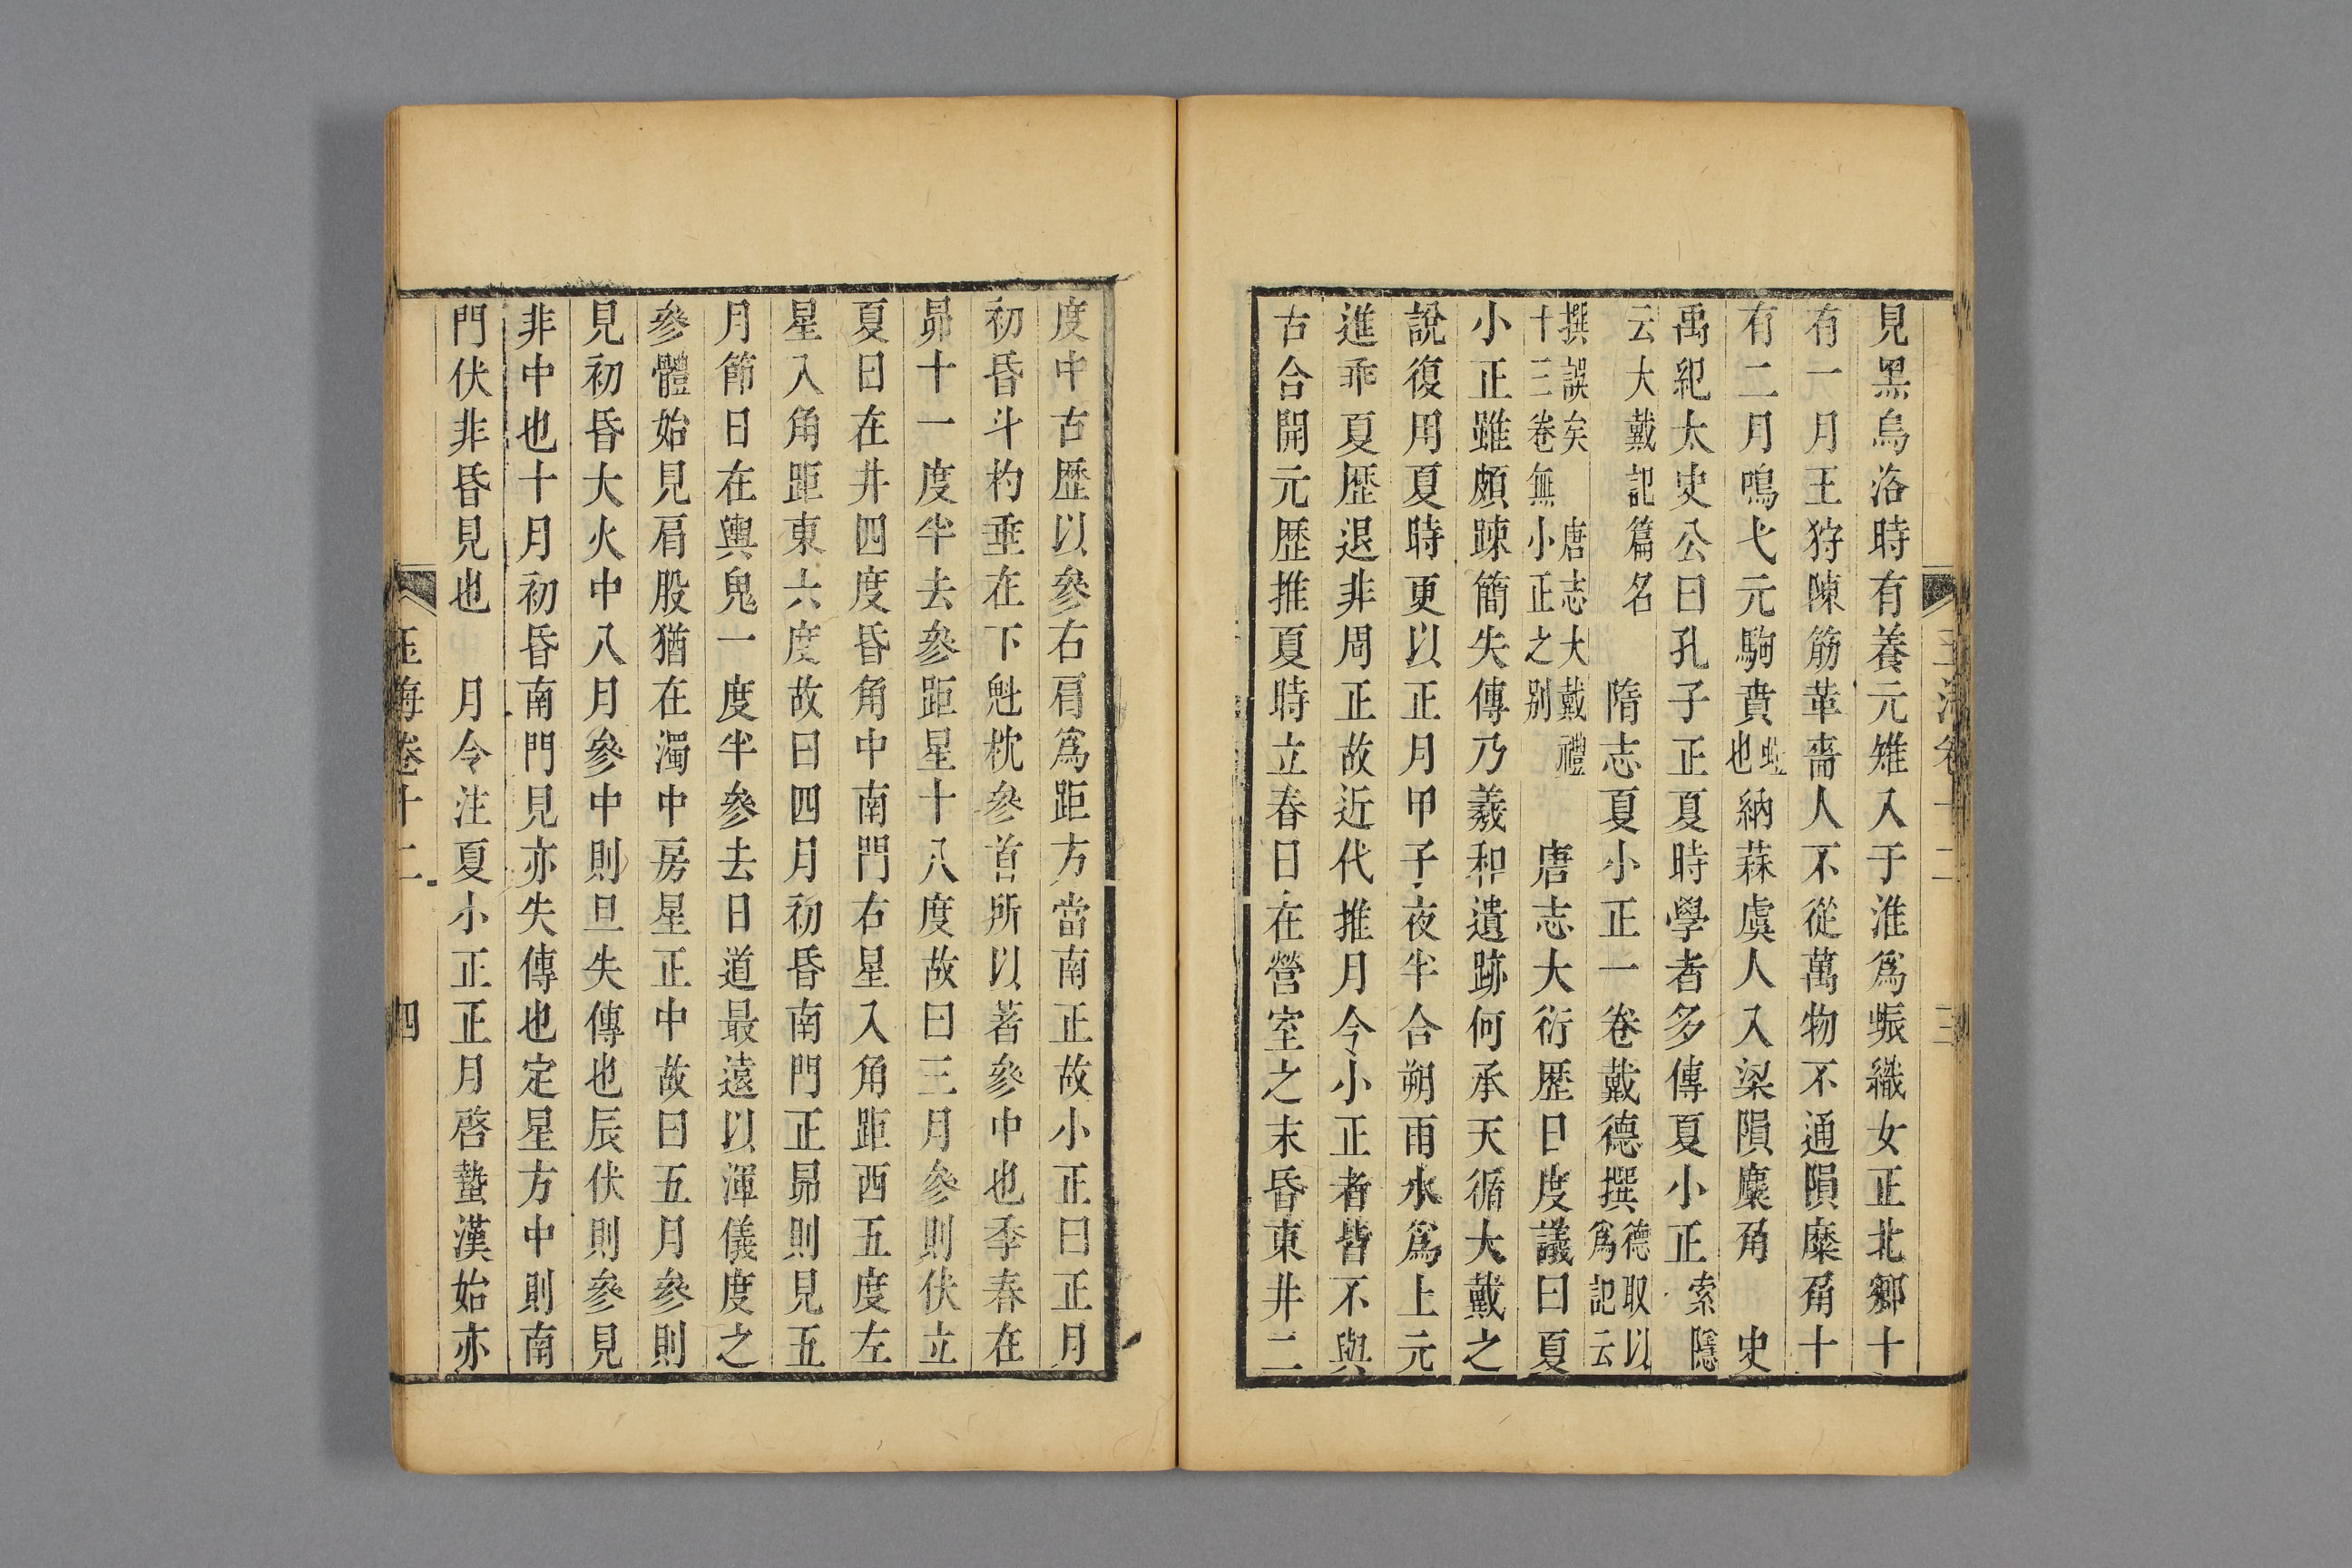 見黑鳥洛時有養元雉入于淮爲蜄織女正北鄕十
有一月王狩陳筋革嗇人不從萬物不通隕麋角十
有二月鳴弋元駒賁蚍也納蒜虞人入梁隕麋角 史
禹紀太史公曰孔子正夏時學者多傳夏小正索隱
云大戴記篇名 隋志夏小正一卷戴德撰德取以爲記云
撰誤矣 唐志大戴禮十三卷無小正之别 唐志大衍歷日度議曰夏
小正雖頗踈簡失傳乃羲和遺跡何承天循大戴之
說復用夏時更以正月甲子夜半合朔雨水爲上元
進乖夏歷退非周正故近代推月令小正者皆不與
古合開元歷推夏時立春日在營室之末昏東井二
玉海卷十二 三
度中古歷以參右肩爲距方當南正故小正曰正月
初昏斗杓垂在下魁枕參首所以著參中也季春在
昴十一度半去參距星十八度故曰三月參則伏立
夏日在井四度昏角中南門右星入角距西五度左
星入角距東六度故曰四月初昏南門正昴則見五
月節日在輿鬼一度半參去日道最遠以渾儀度之
參體始見肩股猶在濁中房星正中故曰五月參則
見初昏大火中八月參中則旦失傳也辰伏則參見
非中也十月初昏南門見亦失傳也定星方中則南
門伏非昏見也 月令注夏小正正月啓蟄漢始亦
玉海卷十二 四